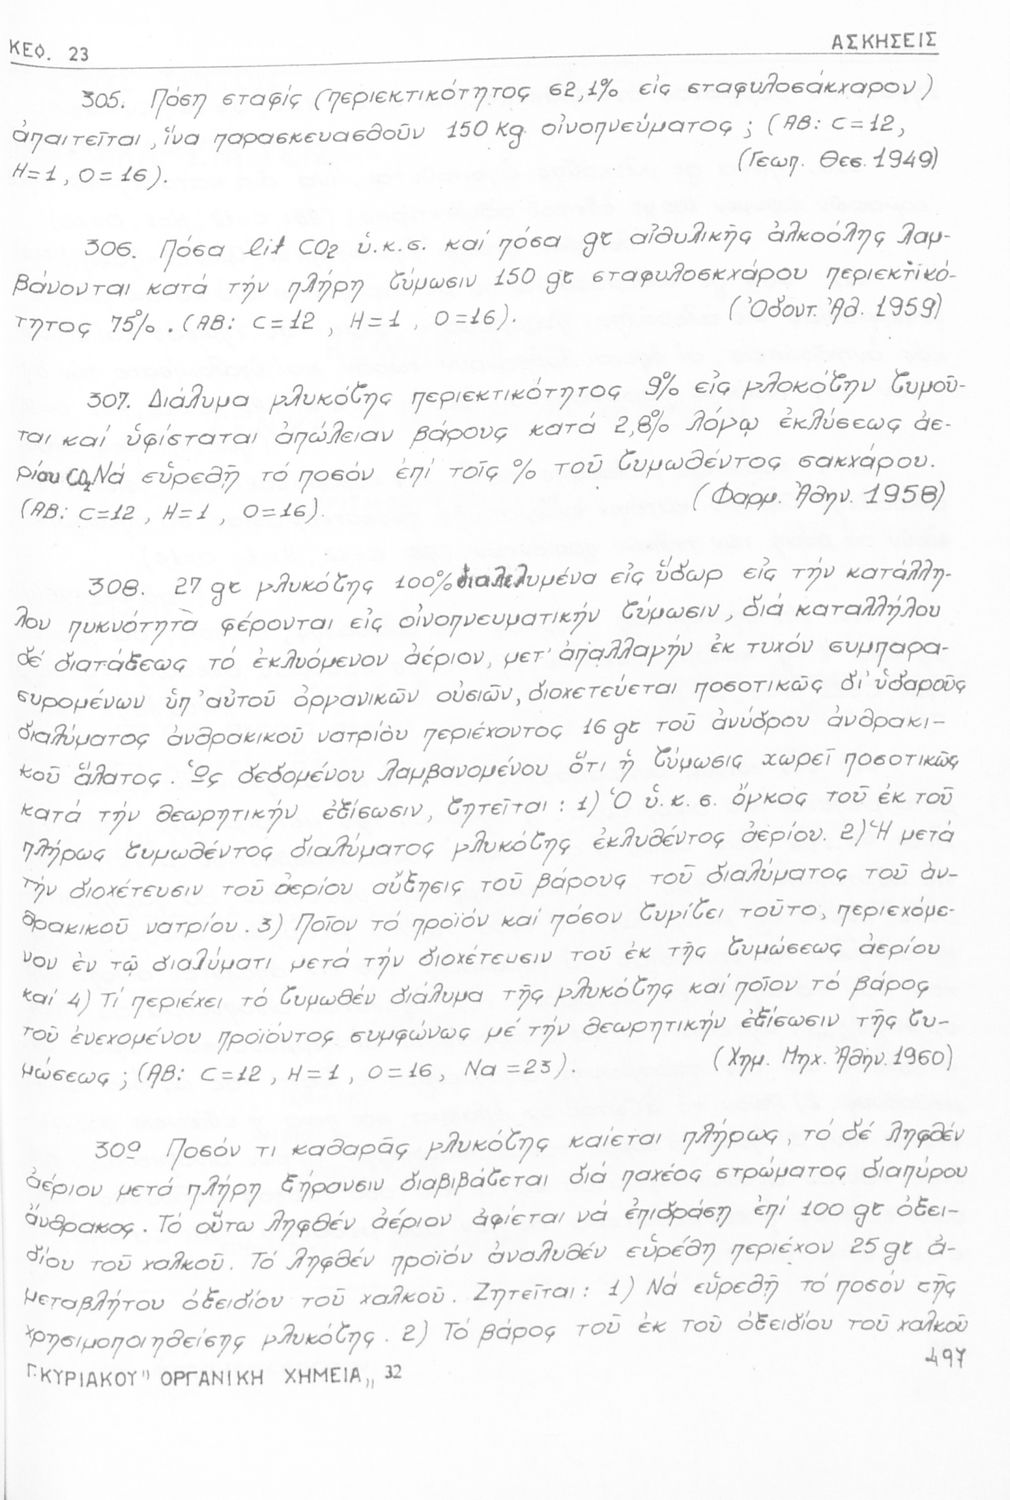 ΚΕΦ. 23
ΑΣΚΗΣΕΙΣ
305. Πόση σταφίς (περιεκτικότητος 62,1% εἰς σταφυλοσάκχαρον)
ἀπαιτεῖται, ἵνα παρασκευασθοῦν 150 Kg οἰνοπνεύματος; (ΑΒ: C=12,
Η=1, Ο=16). (Γεωπ. Θεσ. 1949)
306. Πόσα lit CO2 ὑ.κ.σ. καί πόσα gr αἰθυλικῆς ἀλκοόλης λαμ-
βάνονται κατά τήν πλήρη ζύμωσιν 150 gr σταφυλοσκχάρου περιεκτικό-
τητος 75%. (ΑΒ: C=12, Η=1, Ο=16). (Ὀδοντ. Ἀθ. 1959)
307. Διάλυμα γλυκόζης περιεκτικότητος 9% εἰς γλοκόζην ζυμοῦ-
ται καί ὑφίσταται ἀπώλειαν βάρους κατά 2,8% λόγῳ ἐκλύσεως ἀε-
ρίου CO2 Νά εὑρεθῆ τό ποσόν ἐπί τοῖς % τοῦ ζυμωθέντος σακχάρου.
(ΑΒ: C=12, Η=1, Ο=16). (Φαρμ. Ἀθην. 1958)
308. 27 gr γλυκόζης 100% διαλελυμένα εἰς ὕδωρ εἰς τήν κατάλλη-
λου πυκνότητα φέρονται εἰς οἰνοπνευματικήν ζύμωσιν, διά καταλλήλου
δέ διατάξεως τό ἐκλυόμενον ἀέριον, μετ' ἀπαλλαγήν ἐκ τυχόν συμπαρα-
συρομένων ὑπ' αὐτοῦ ὀργανικῶν οὐσιῶν, διοχετεύεται ποσοτικῶς δι' ὑδαροῦς
διαλύματος ἀνθρακικοῦ νατρίου περιέχοντος 16 gr τοῦ ἀνύδρου ἀνθρακι-
κοῦ ἅλατος. Ὡς δεδομένου λαμβανομένου ὅτι ἡ ζύμωσις χωρεῖ ποσοτικῶς
κατά τήν θεωρητικήν ἐξίσωσιν, ζητεῖται: 1) Ὁ ὑ.κ.σ. ὄγκος τοῦ ἐκ τοῦ
πλήρως ζυμωθέντος διαλύματος γλυκόζης ἐκλυθέντος ἀερίου. 2) Ἡ μετά
τήν διοχέτευσιν τοῦ ἀερίου αὔξησις τοῦ βάρους τοῦ διαλύματος τοῦ ἀν-
θρακικοῦ νατρίου. 3) Ποῖον τό προϊόν καί πόσον ζυγίζει τοῦτο, περιεχόμε-
νον ἐν τῷ διαλύματι μετά τήν διοχέτευσιν τοῦ ἐκ τῆς ζυμώσεως ἀερίου
καί 4) Τί περιέχει τό ζυμωθέν διάλυμα τῆς γλυκόζης καί ποῖον τό βάρος
τοῦ ἐνεχομένου προϊόντος συμφώνως μέ τήν θεωρητικήν ἐξίσωσιν τῆς ζυ-
μώσεως; (ΑΒ: C=12, Η=1, Ο=16, Na=23). (Χημ. Μηχ. Ἀθην. 1960)
309 Ποσόν τι καθαρᾶς γλυκόζης καίεται πλήρως, τό δέ ληφθέν
ἀέριον μετά πλήρη ξήρανσιν διαβιβάζεται διά παχέος στρώματος διαπύρου
ἄνθρακος. Τό οὕτω ληφθέν ἀέριον ἀφίεται νά ἐπιδράση ἐπί 100 gr ὀξει-
δίου τοῦ χαλκοῦ. Τό ληφθέν προϊόν ἀναλυθέν εὑρέθη περιέχον 25 gr ἀ-
μεταβλήτου ὀξειδίου τοῦ χαλκοῦ. Ζητεῖται: 1) Νά εὑρεθῆ τό ποσόν τῆς
χρησιμοποιηθείσης γλυκόζης. 2) Τό βάρος τοῦ ἐκ τοῦ ὀξειδίου τοῦ χαλκοῦ
497
Γ. ΚΥΡΙΑΚΟΥ "ΟΡΓΑΝΙΚΗ ΧΗΜΕΙΑ" 32